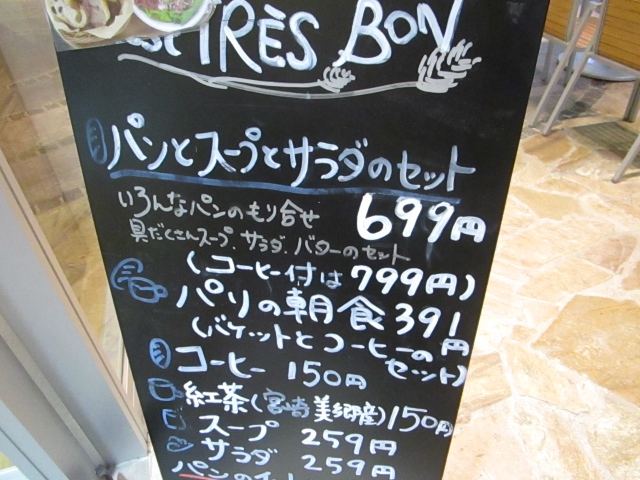 TRÈS BON
パンとスープとサラダのセット
いろんなパンのもり合せ 699円
具だくさんスープ、サラダ、バターのセット
(コーヒー付は799円)
パリの朝食391円
(バケットとコーヒーのセット)
コーヒー 150円
紅茶(宮崎美郷産)150円
スープ 259円
サラダ 259円